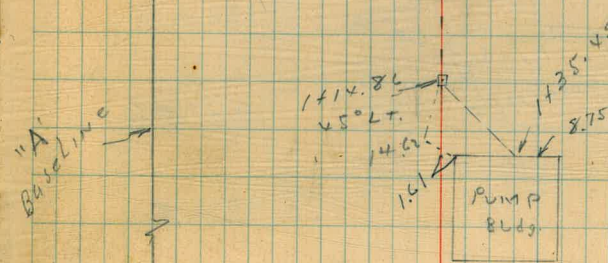 "A"
Baseline
1+14.82
45° Lt.
14.62'
1.61
1+35.45
8.75
Pump
Bldg.